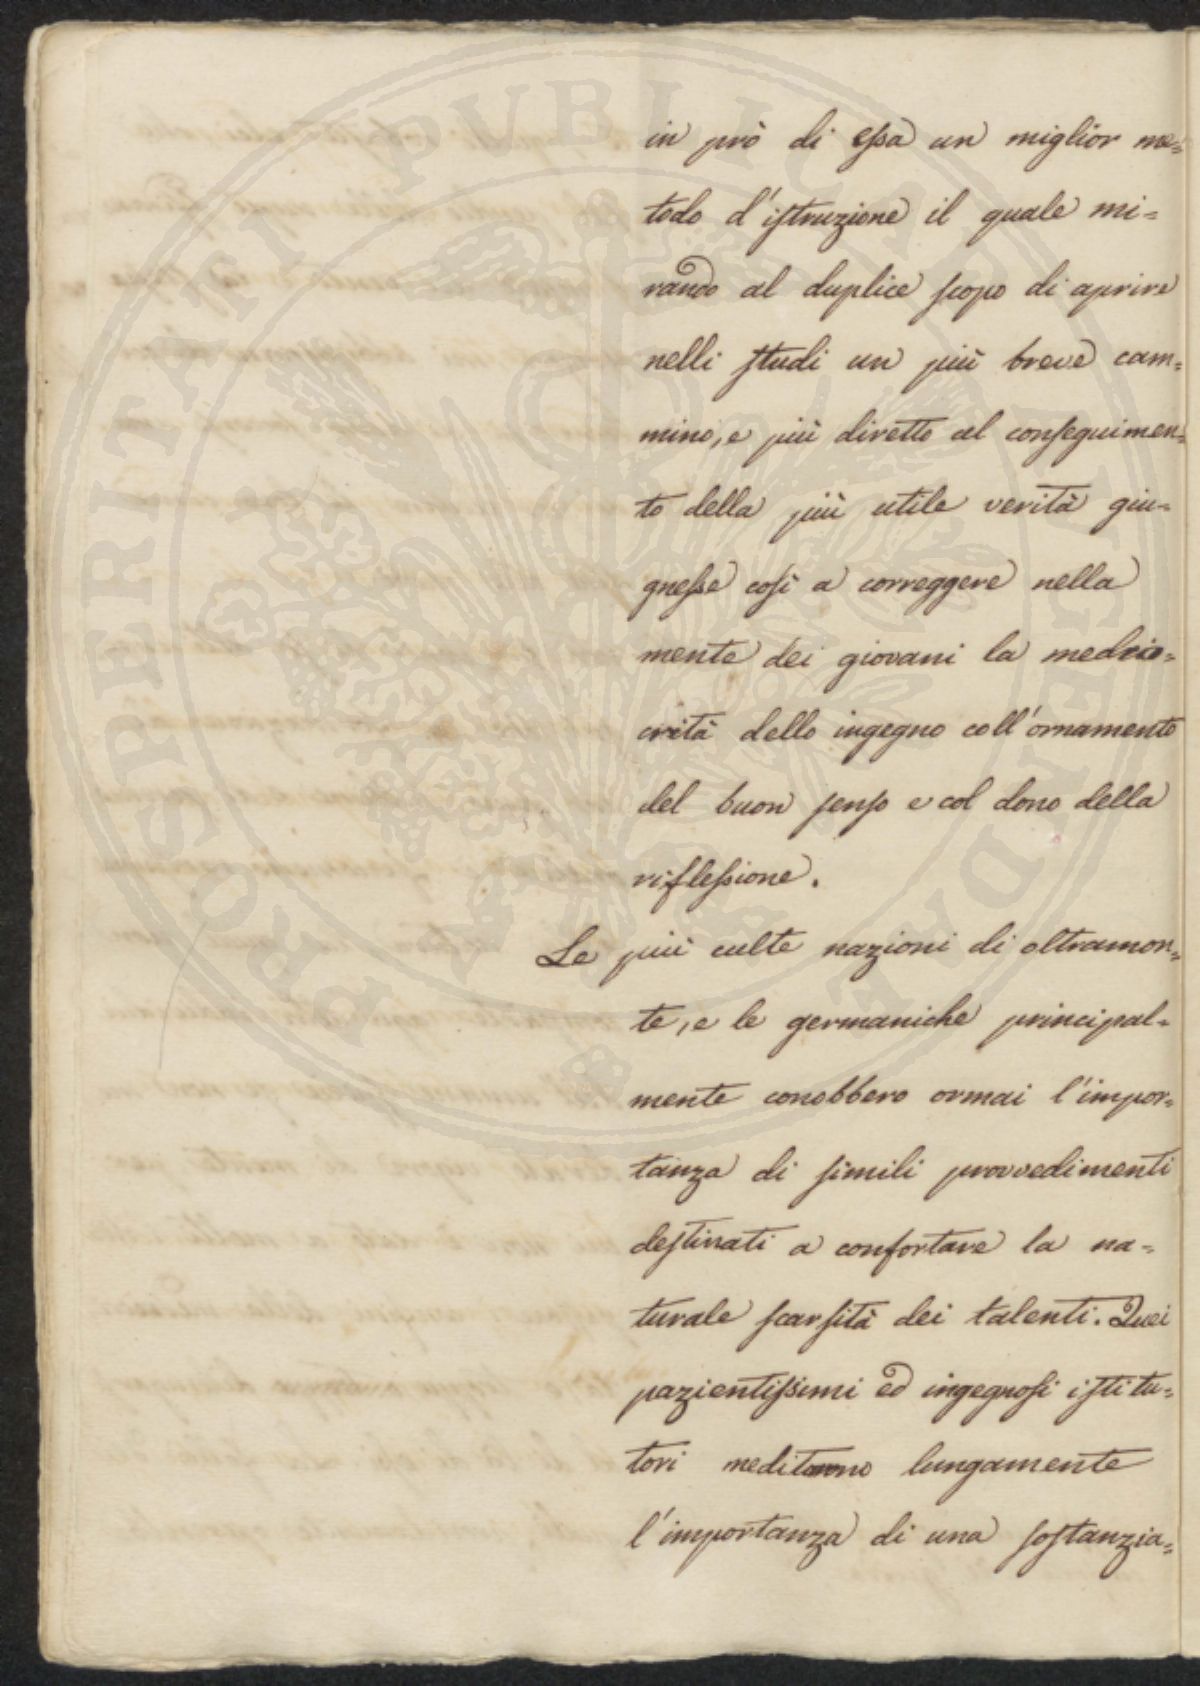 in prò di eſsa un miglior me=
todo d'iſtruzione il quale mi=
rando al duplice ſcopo di aprire
nelli ſtudi un più breve cam=
mino, e più diretto al conſeguimen=
to della più utile verità giu=
gneſse coſì a correggere nella
mente dei giovani la medio=
crità dello ingegno coll'ornamento
del buon ſenſo e col dono della
rifleſsione.
Le più culte nazioni di oltramon=
te, e le germaniche principal=
mente conobbero ormai l'impor=
tanza di ſimili provvedimenti
deſtinati a confortare la na=
turale ſcarſità dei talenti. Quei
pazientiſsimi ed ingegnoſi iſtitu=
tori meditarono lungamente
l'importanza di una ſoſtanzia=
PROSPERITATI PUBLICAE AUGENDAE